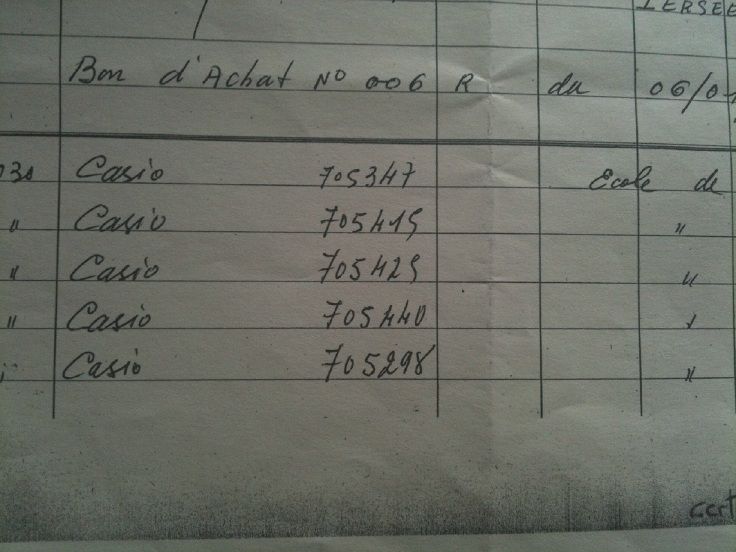 IERSEE
Bon d'Achat N° 006 R du 06/0
030 Casio 705347 Ecole de
" Casio 705415 "
" Casio 705425 "
" Casio 705440 "
" Casio 705298 "
cert